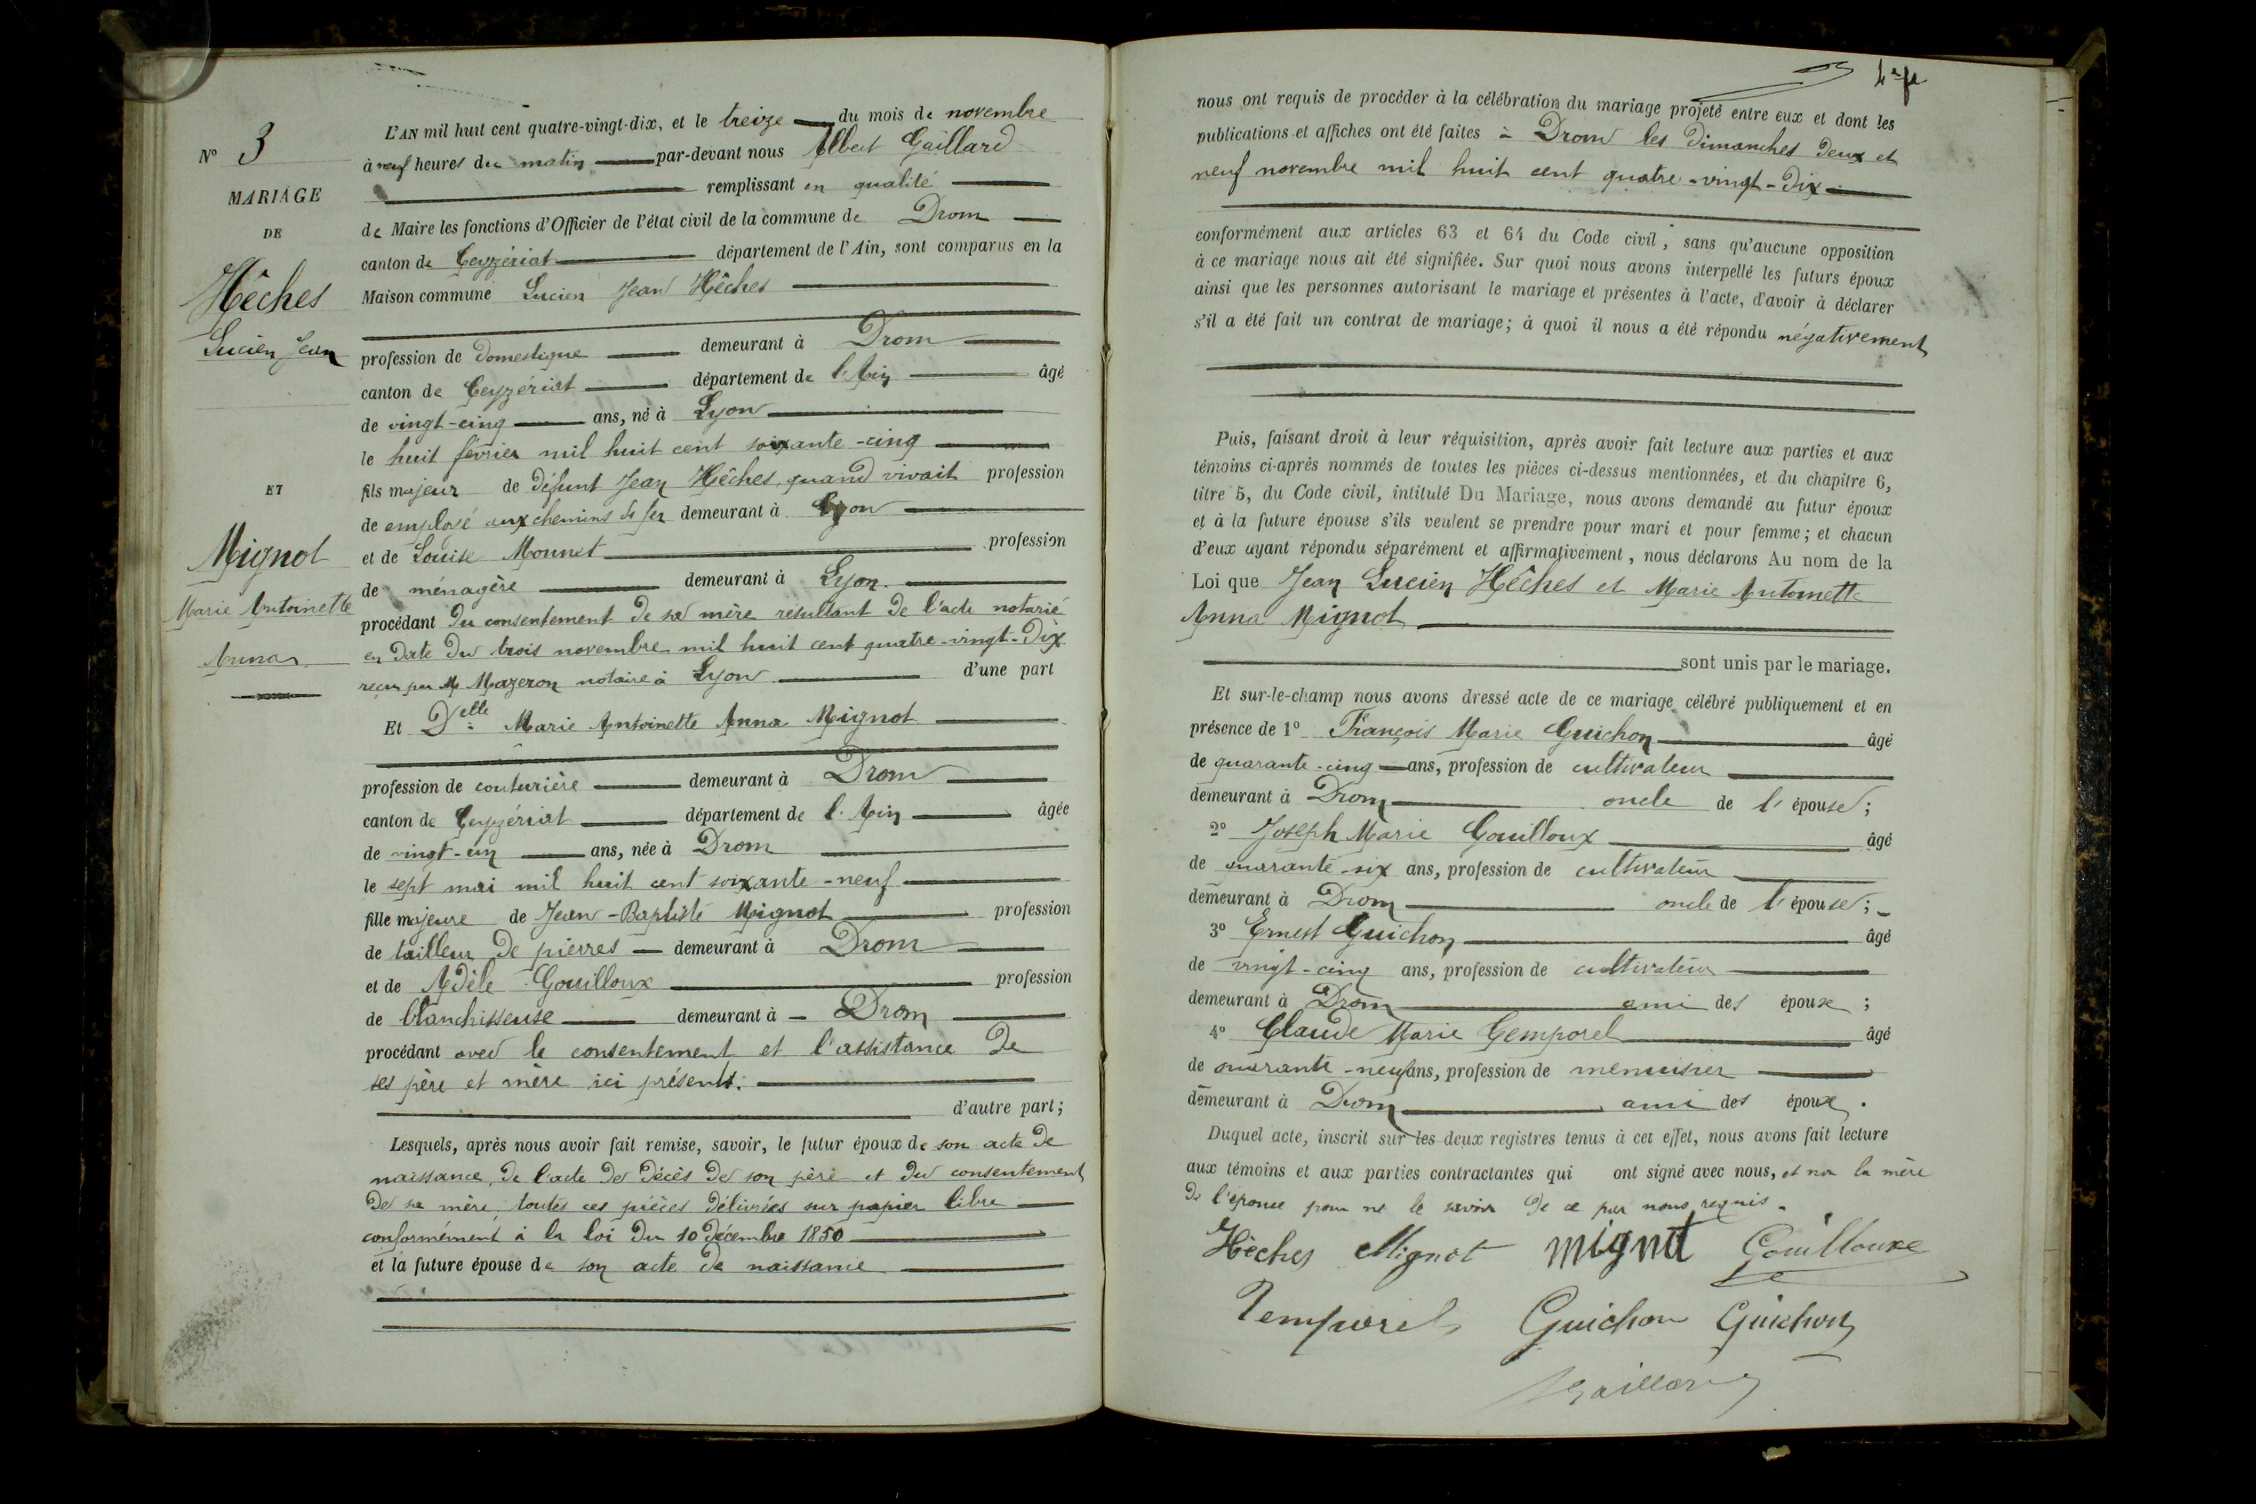 N° 3
MARIAGE
DE
Hêches
Lucien Jean
ET
Mignot
Marie Antoinette
Anna
L'AN mil huit cent quatre-vingt-dix, et le treize du mois de novembre
à neuf heures du matin par-devant nous Albert Gaillard
remplissant en qualité
de Maire les fonctions d'Officier de l'état civil de la commune de Drom
canton de Ceyzériat département de l'Ain, sont comparus en la
Maison commune Lucien Jean Hêches
profession de domestique demeurant à Drom
canton de Ceyzériat département de l'Ain âgé
de vingt-cinq ans, né à Lyon
le huit février mil huit cent soixante-cinq
fils majeur de défunt Jean Hêches, quand vivait profession
de employé aux chemins de fer demeurant à Lyon
et de Louise Mounet profession
de ménagère demeurant à Lyon.
procédant du consentement de sa mère résultant de l'acte notarié
en date du trois novembre mil huit cent quatre-vingt-dix
reçu par Me Mazeron notaire à Lyon d'une part
Et Delle Marie Antoinette Anna Mignot
profession de couturière demeurant à Drom
canton de Ceyzériat département de l'Ain âgée
de vingt-un ans, née à Drom
le sept mai mil huit cent soixante-neuf
fille majeure de Jean-Baptiste Mignot profession
de tailleur de pierres demeurant à Drom
et de Adèle Gouilloux profession
de blanchisseuse demeurant à Drom
procédant avec le consentement et l'assistance de
ses père et mère ici présents.
d'autre part;
Lesquels, après nous avoir fait remise, savoir, le futur époux de son acte de
naissance, de l'acte de décès de son père et du consentement
de sa mère, toutes ces pièces délivrées sur papier libre
conformément à la loi du 10 décembre 1850
et la future épouse de son acte de naissance
nous ont requis de procéder à la célébration du mariage projeté entre eux et dont les
publications et affiches ont été faites à Drom les dimanches deux et
neuf novembre mil huit cent quatre-vingt-dix
conformément aux articles 63 et 64 du Code civil, sans qu'aucune opposition
à ce mariage nous ait été signifiée. Sur quoi nous avons interpellé les futurs époux
ainsi que les personnes autorisant le mariage et présentes à l'acte, d'avoir à déclarer
s'il a été fait un contrat de mariage; à quoi il nous a été répondu négativement
Puis, faisant droit à leur réquisition, après avoir fait lecture aux parties et aux
témoins ci-après nommés de toutes les pièces ci-dessus mentionnées, et du chapitre 6,
titre 5, du Code civil, intitulé Du Mariage, nous avons demandé au futur époux
et à la future épouse s'ils veulent se prendre pour mari et pour femme; et chacun
d'eux ayant répondu séparément et affirmativement, nous déclarons Au nom de la
Loi que Jean Lucien Hêches et Marie Antoinette
Anna Mignot
sont unis par le mariage.
Et sur-le-champ nous avons dressé acte de ce mariage célébré publiquement et en
présence de 1° François Marie Guichon âgé
de quarante-cinq ans, profession de cultivateur
demeurant à Drom oncle de l'épouse;
2° Joseph Marie Gouilloux âgé
de quarante-six ans, profession de cultivateur
demeurant à Drom oncle de l'épouse;
3° Ernest Guichon âgé
de vingt-cinq ans, profession de cultivateur
demeurant à Drom ami des époux;
4° Claude Marie Temporel âgé
de quarante-neuf ans, profession de menuisier
demeurant à Drom ami des époux.
Duquel acte, inscrit sur les deux registres tenus à cet effet, nous avons fait lecture
aux témoins et aux parties contractantes qui ont signé avec nous, et non la mère
de l'épouse pour ne le savoir de ce par nous requis.
Hêches Mignot mignot Gouilloux
Temporel Guichon Guichon
Gaillard